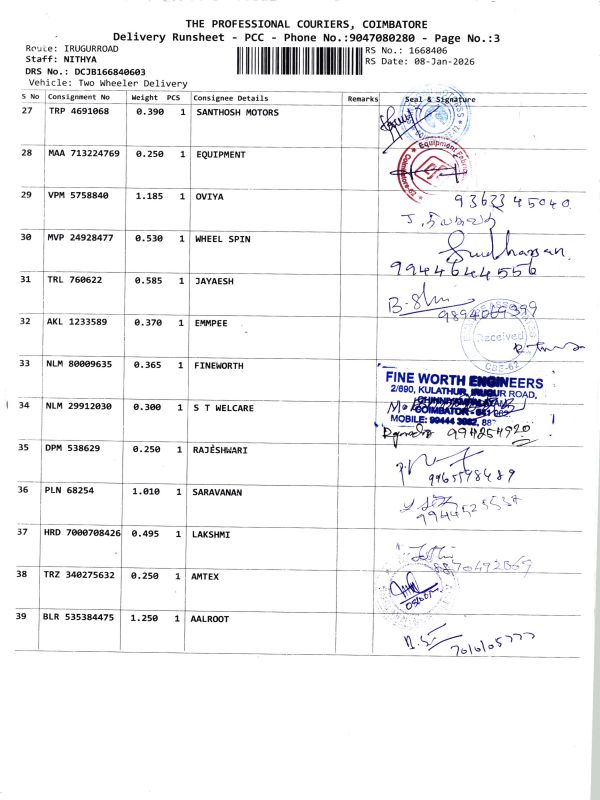 THE PROFESSIONAL COURIERS, COIMBATORE
Delivery Runsheet - PCC - Phone No.:9047080280 - Page No.:3
Route: IRUGURROAD RS No.: 1668406
Staff: NITHYA RS Date: 08-Jan-2026
DRS No.: DCJB166840603
Vehicle: Two Wheeler Delivery
S No Consignment No Weight PCS Consignee Details Remarks Seal & Signature
27 TRP 4691068 0.390 1 SANTHOSH MOTORS
28 MAA 713224769 0.250 1 EQUIPMENT
29 VPM 5758840 1.185 1 OVIYA
9362345040
30 MVP 24928477 0.530 1 WHEEL SPIN
9944644556
31 TRL 760622 0.585 1 JAYAESH
32 AKL 1233589 0.370 1 EMMPEE
Received
CBE-62
33 NLM 80009635 0.365 1 FINEWORTH
FINE WORTH ENGINEERS
2/690, KULATHUR, IRUGUR ROAD,
34 NLM 29912030 0.300 1 S T WELCARE
COIMBATORE
35 DPM 538629 0.250 1 RAJESHWARI
9965598489
36 PLN 68254 1.010 1 SARAVANAN
37 HRD 7000708426 0.495 1 LAKSHMI
8870492869
38 TRZ 340275632 0.250 1 AMTEX
39 BLR 535384475 1.250 1 AALROOT